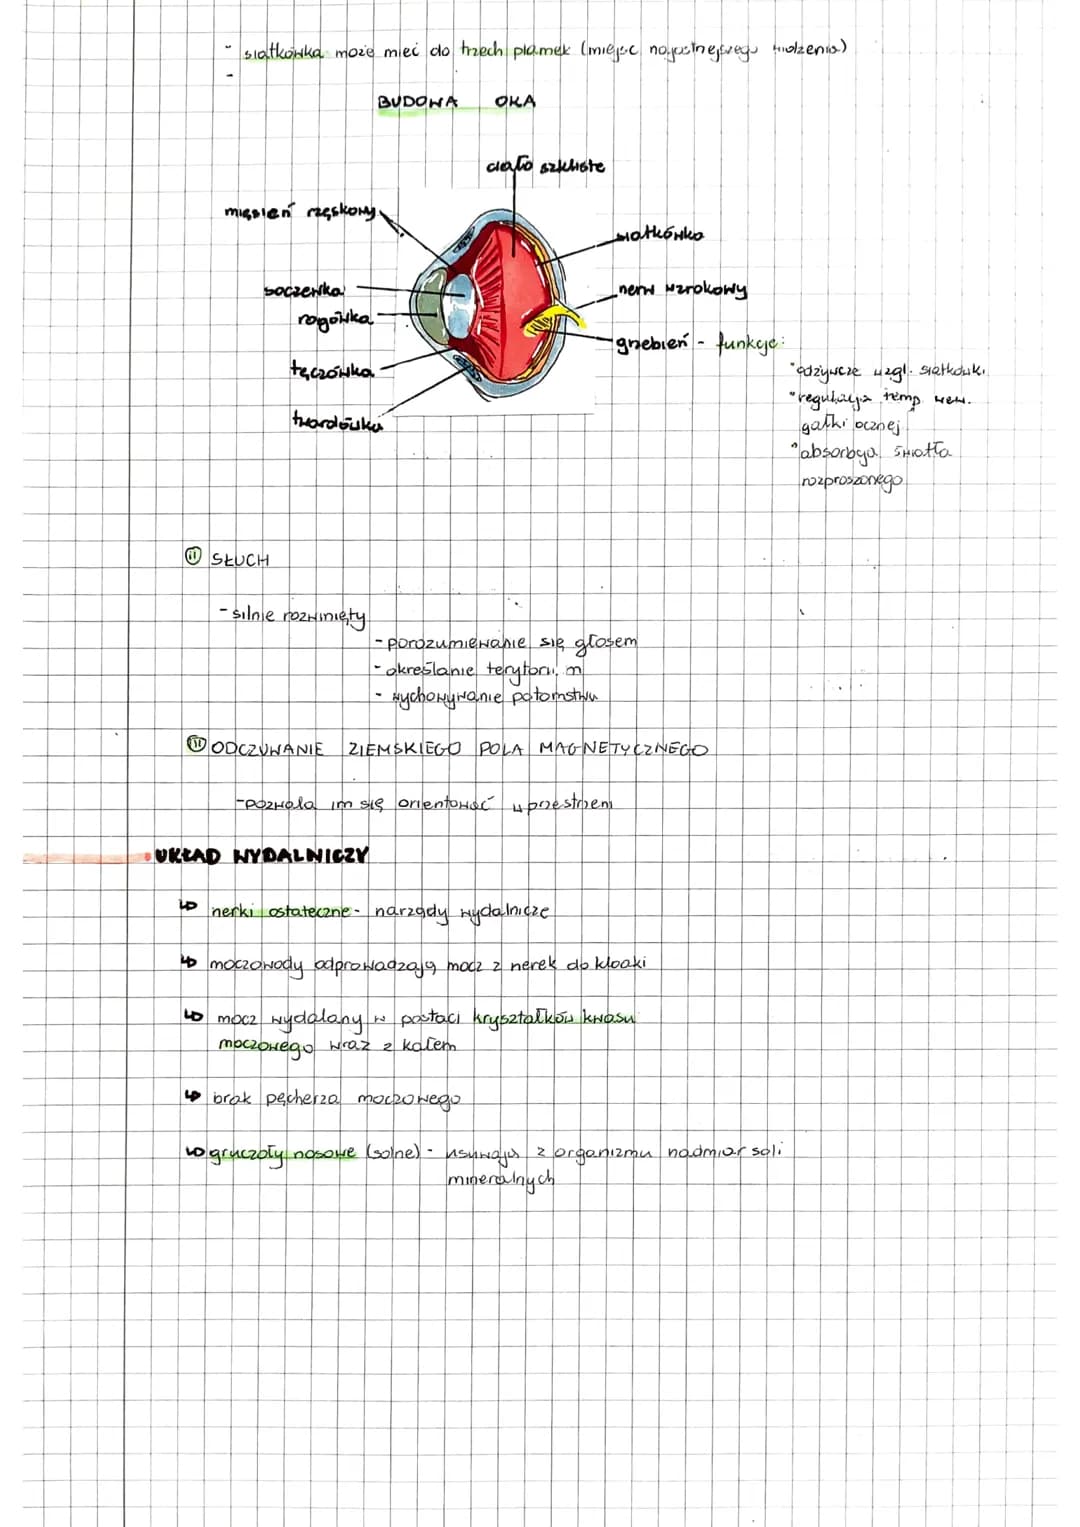 - siatkówka może mieć do trzech plamek (miejsc najostrzejszego widzenia)
-
BUDOWA OKA
ciało szkliste
mięsień rzęskowy
siatkówka
soczewka
nerw wzrokowy
rogówka
grzebień - funkcje:
tęczówka
odżywcze wzgl. siatkówki
regulacja temp wew.
twardówka
gałki ocznej
absorbcja światła
rozproszonego
(ii) SŁUCH
- silnie rozwinięty
- porozumiewanie się głosem
- określanie terytorium
- wychowywanie potomstwa
(iii) ODCZUWANIE ZIEMSKIEGO POLA MAGNETYCZNEGO
- pozwala im się orientować w przestrzeni
• UKŁAD WYDALNICZY
↳ nerki ostateczne - narządy wydalnicze
↳ moczowody odprowadzają mocz z nerek do kloaki
↳ mocz wydalany w postaci kryształków kwasu
moczowego wraz z kałem
↳ brak pęcherza moczowego
↳ gruczoły nosowe (solne) - usuwają z organizmu nadmiar soli
mineralnych